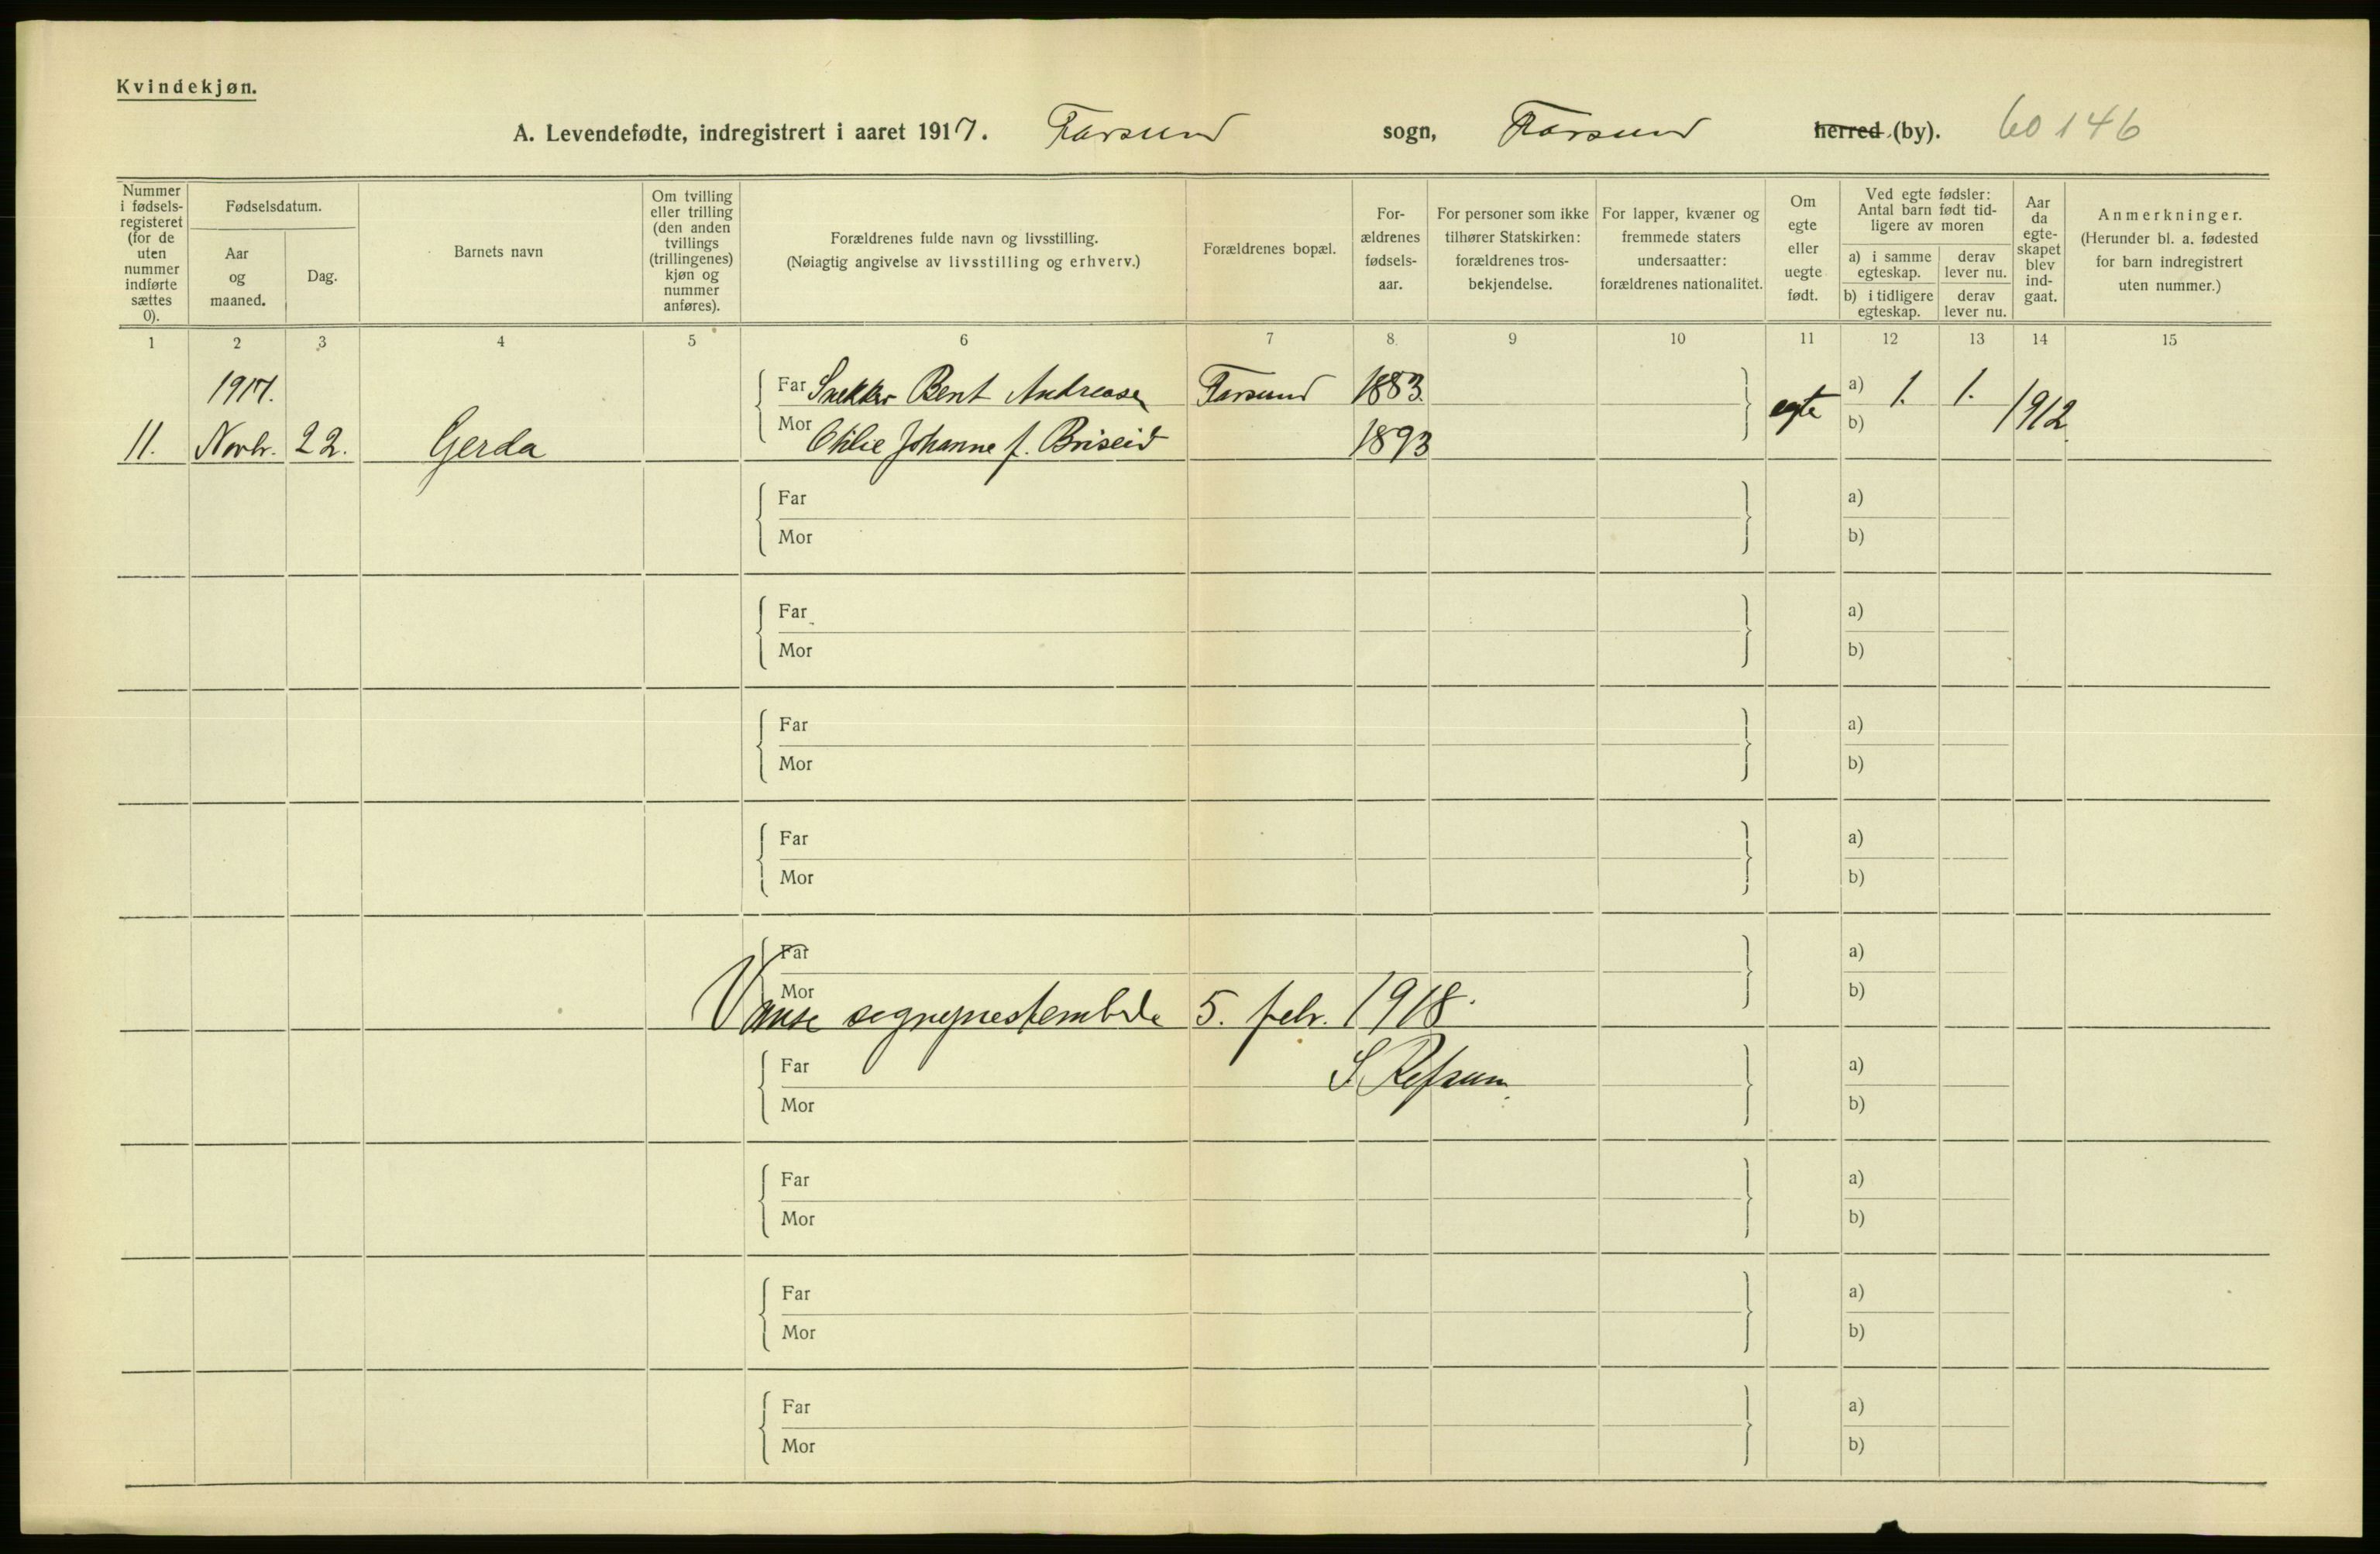 Kvindekjøn.
A. Levendefødte, indregistrert i aaret 1917. Farsund sogn, Farsund herred (by). 60 146
Nummer i fødsels-registeret (for de uten nummer indførte sættes 0).
Fødselsdatum.
Aar og maaned.
Dag.
Barnets navn
Om tvilling eller trilling (den anden tvillings (trillingenes) kjøn og nummer anføres).
Forældrenes fulde navn og livsstilling.
(Nøiagtig angivelse av livsstilling og erhverv.)
Forældrenes bopæl.
For-ældrenes fødsels-aar.
For personer som ikke tilhører Statskirken: forældrenes tros-bekjendelse.
For lapper, kvæner og fremmede staters undersaatter: forældrenes nationalitet.
Om egte eller uegte født.
Ved egte fødsler: Antal barn født tid-ligere av moren
a) i samme egteskap.
derav lever nu.
b) i tidligere egteskap.
derav lever nu.
Aar da egte-skapet blev ind-gaat.
Anmerkninger.
(Herunder bl. a. fødested for barn indregistrert uten nummer.)
1 2 3 4 5 6 7 8 9 10 11 12 13 14 15
1917. Far Snekker Bent Andreasen Farsund 1883. egte a) 1. 1. 1912.
11. Novbr. 22. Gerda Mor Othilie Johanne f. Briseid 1893 b)
Far a)
Mor b)
Far a)
Mor b)
Far a)
Mor b)
Far a)
Mor b)
Far a)
Mor b)
Vanse sogneprestembede 5. febr. 1918.
Far S Refsum. a)
Mor b)
Far a)
Mor b)
Far a)
Mor b)
Far a)
Mor b)